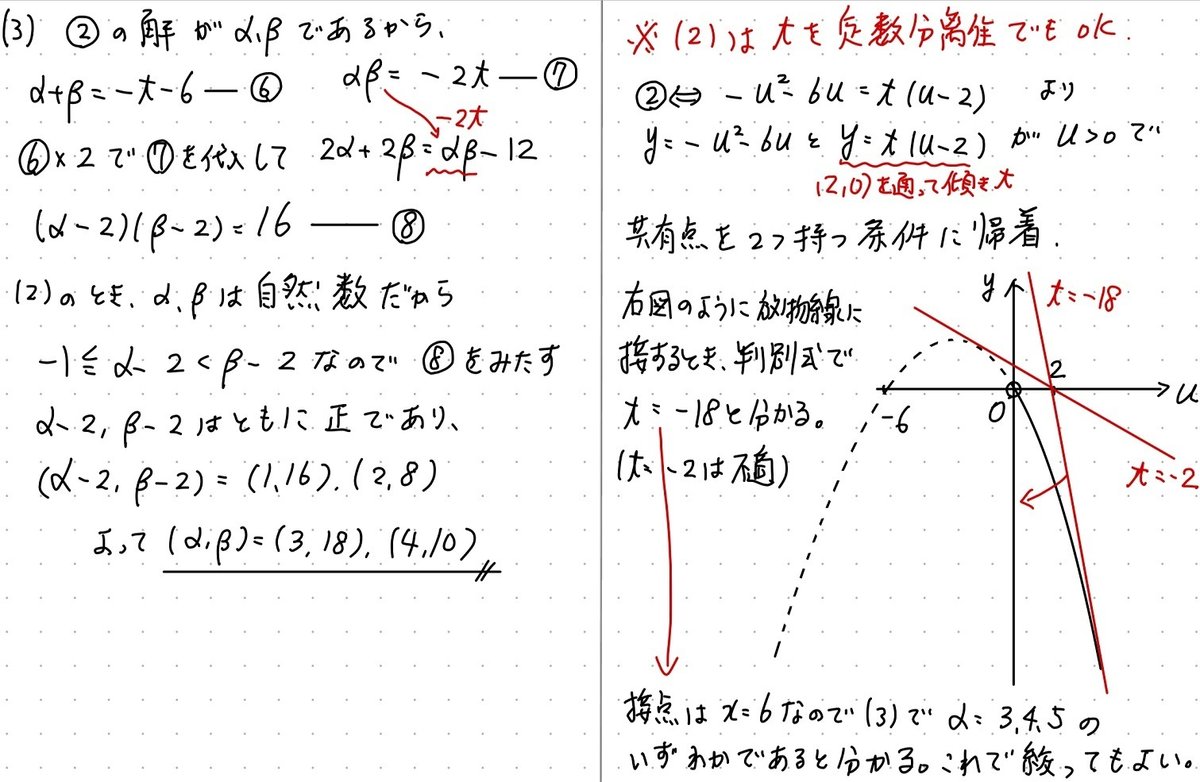 (3) ②の解がα,βであるから、
α+β=-t-6 — ⑥  αβ=-2t — ⑦
-2t
⑥×2で⑦を代入して 2α+2β=αβ-12
(α-2)(β-2)=16 — ⑧
(2)のとき、α,βは自然数だから
-1≦α-2<β-2なので⑧をみたす
α-2, β-2はともに正であり、
(α-2, β-2)=(1,16), (2,8)
よって (α,β)=(3,18), (4,10)
※(2)はtを定数分離でもOK.
②⇔ -u²-6u=t(u-2) より
y=-u²-6uとy=t(u-2)がu>0で
(2,0)を通って傾きt
共有点を2つ持つ条件に帰着.
右図のように放物線に
接するとき、判別式で
t=-18と分かる。
(t=-2は不適)
y
t=-18
2
u
-6
O
t=-2
接点はx=6なので(3)でα=3,4,5の
いずれかであると分かる。これで絞ってもよい。